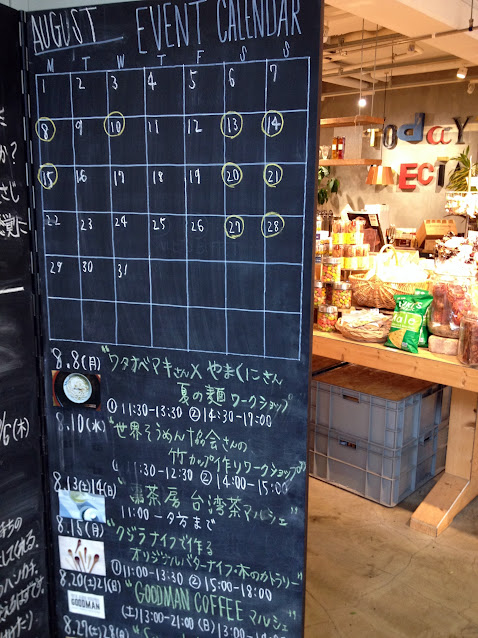 AUGUST EVENT CALENDAR
M T W T F S S
1 2 3 4 5 6 7
8 9 10 11 12 13 14
15 16 17 18 19 20 21
22 23 24 25 26 27 28
29 30 31
8.8(月) "ワタナベマキさん×やまくにさん
夏の麺ワークショップ"
①11:30-13:30 ②14:30-17:00
8.10(水) "世界そうめん協会さんの
竹カップ作りワークショップ"
①11:30-12:30 ②14:00-15:00
8.13(土)14(日) 茶房 台湾茶マルシェ"
11:00-夕方まで
8.15(月) "クジラナイフで作る
オリジナルバターナイフ・木のカトラリー"
①11:00-13:30 ②15:00-18:00
8.20(土)21(日) "GOODMAN COFFEE マルシェ"
GOODMAN
(土)13:00-21:00 (日)13:00-18:00
8.27(土)28(日)
TODAY
か?
(木)